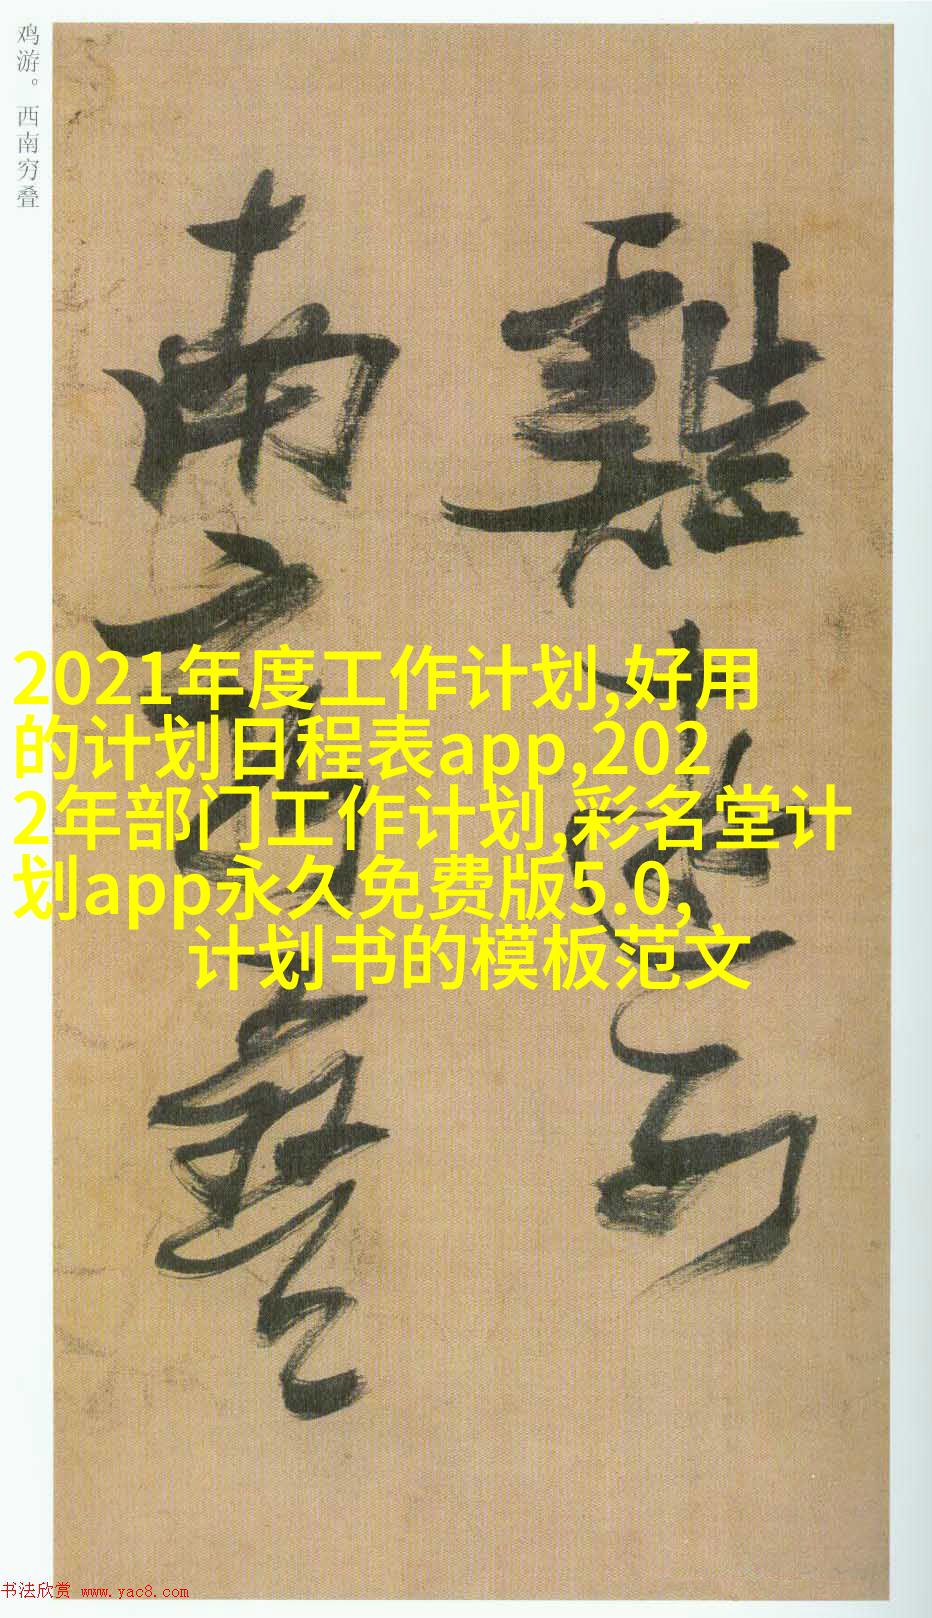 鸡游。西南穷叠
雞游西
南窮疊
2021年度工作计划,好用
的计划日程表app,202
2年部门工作计划,彩名堂计
划app永久免费版5.0,
计划书的模板范文
书法欣赏 www.yac8.com